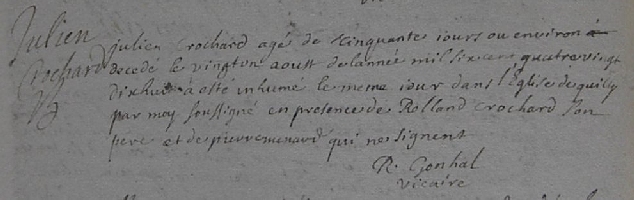 Julien
Crochard
julien crochard agé de scinquante iours ou environ à
decedé le vington aoust de lannée mil six cens quatre vingt
dix huit à esté inhumé le meme iour dans l'Eglise de quilly
par moy soussigné en presence de Rolland Crochard son
pere et de pierre menard qui ne signent
R. Gonhal
vicaire